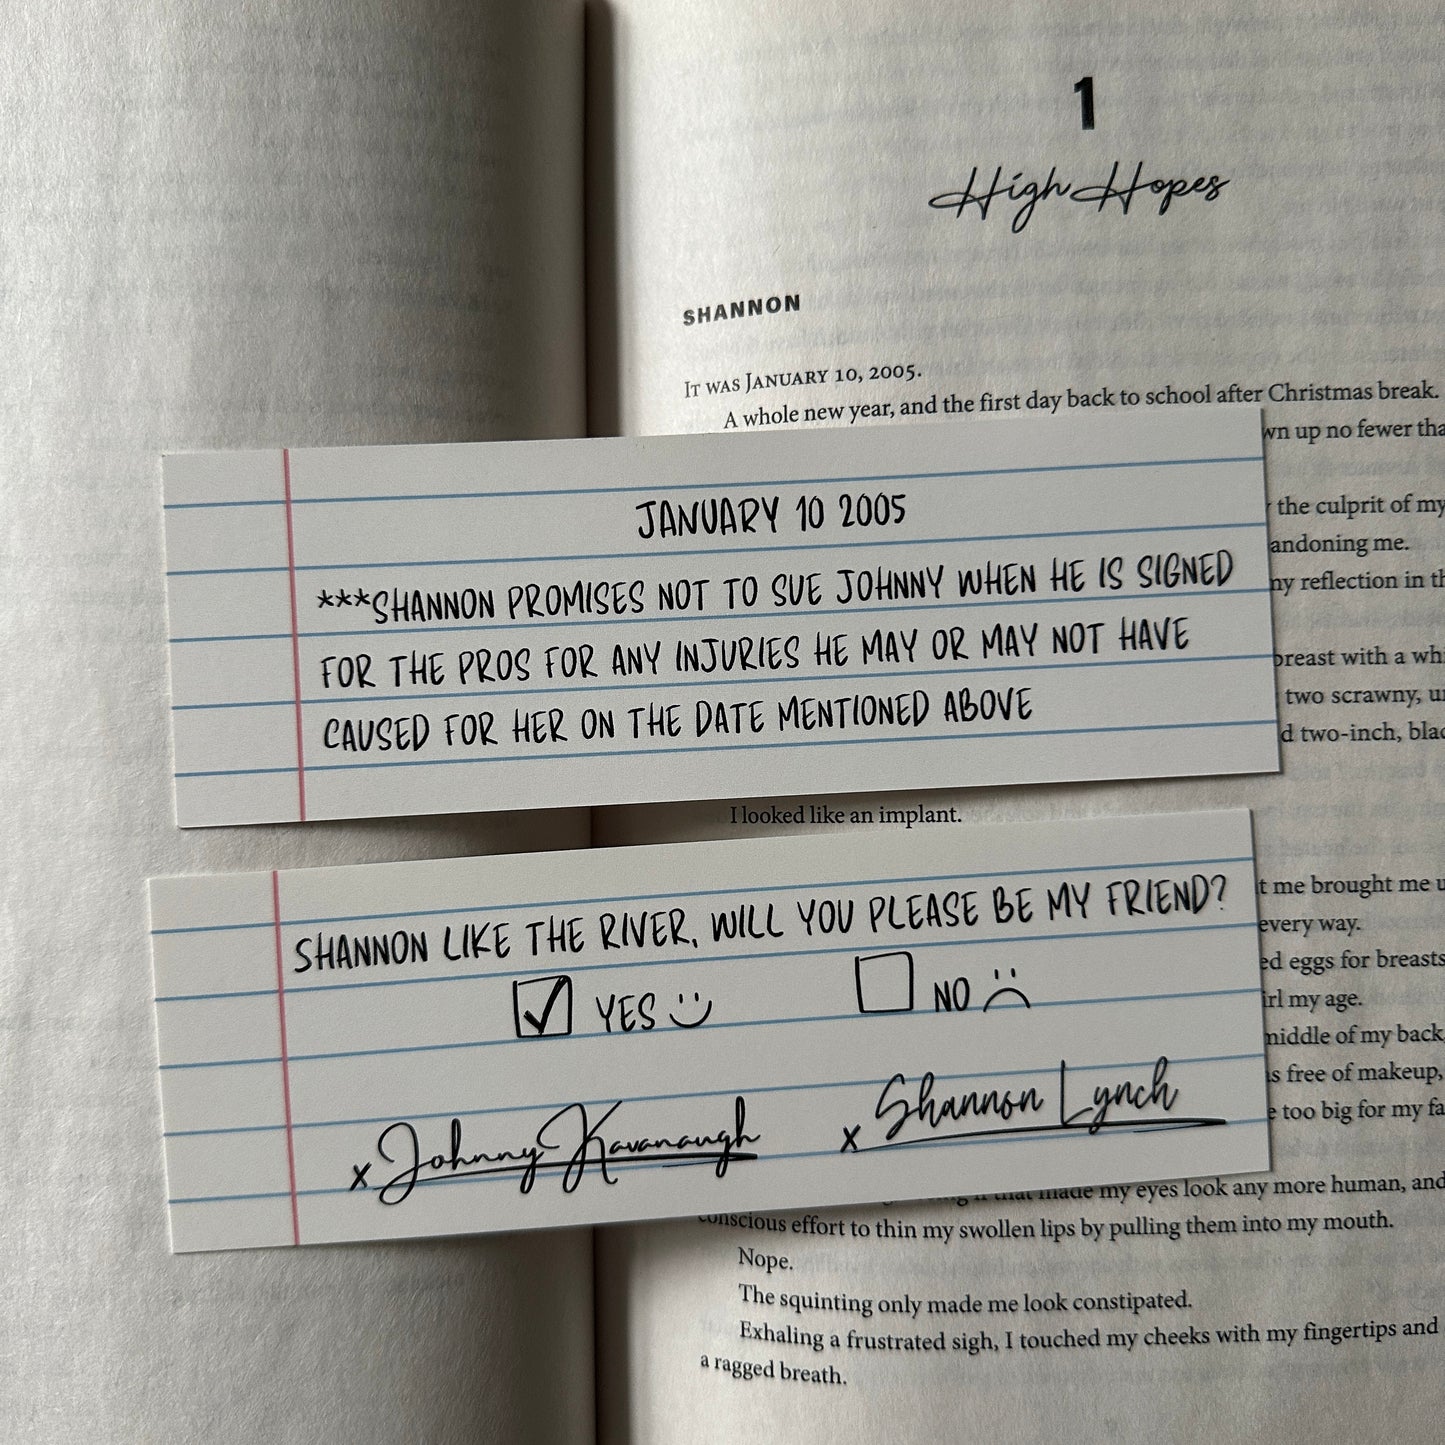 1
High Hopes
SHANNON
IT WAS JANUARY 10, 2005.
A whole new year, and the first day back to school after Christmas break.
wn up no fewer tha
the culprit of my
andoning me.
ny reflection in th
breast with a wh
two scrawny, u
d two-inch, blac
JANUARY 10 2005
***SHANNON PROMISES NOT TO SUE JOHNNY WHEN HE IS SIGNED
FOR THE PROS FOR ANY INJURIES HE MAY OR MAY NOT HAVE
CAUSED FOR HER ON THE DATE MENTIONED ABOVE
I looked like an implant.
t me brought me u
every way.
ed eggs for breasts
irl my age.
middle of my back,
s free of makeup,
e too big for my fa
SHANNON LIKE THE RIVER, WILL YOU PLEASE BE MY FRIEND?
YES NO
x Johnny Kavanaugh x Shannon Lynch
that made my eyes look any more human, and
conscious effort to thin my swollen lips by pulling them into my mouth.
Nope.
The squinting only made me look constipated.
Exhaling a frustrated sigh, I touched my cheeks with my fingertips and
a ragged breath.